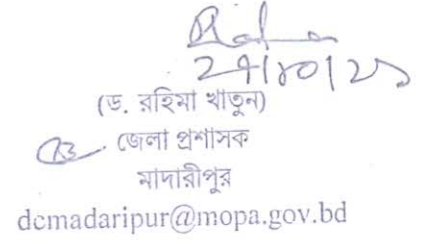 (ড. রহিমা খাতুন)
জেলা প্রশাসক
মাদারীপুর
dcmadaripur@mopa.gov.bd